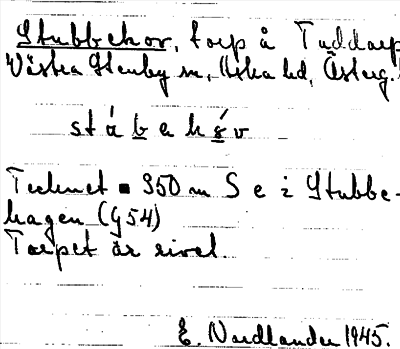 Stubbekov, torp å Tuddarp
Västra Stenby sn, Aska hd, Österg.
stábekòv
Tecknet ▪ 350 m S e i Stubbe-
hagen (G54)
Torpet är rivet.
E. Nordlander 1945.